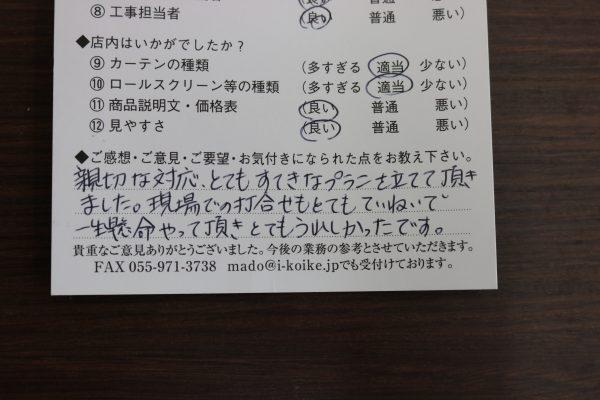 ⑧ 工事担当者 (良い 普通 悪い)
◆店内はいかがでしたか?
⑨ カーテンの種類 (多すぎる 適当 少ない)
⑩ ロールスクリーン等の種類 (多すぎる 適当 少ない)
⑪ 商品説明文・価格表 (良い 普通 悪い)
⑫ 見やすさ (良い 普通 悪い)
◆ご感想・ご意見・ご要望・お気付きになられた点をお教え下さい。
親切な対応、とてもすてきなプランを立てて頂き
ました。現場での打合せもとてもていねいで
一生懸命やって頂きとてもうれしかったです。
貴重なご意見ありがとうございました。今後の業務の参考とさせていただきます。
FAX 055-971-3738 mado@i-koike.jpでも受付けております。